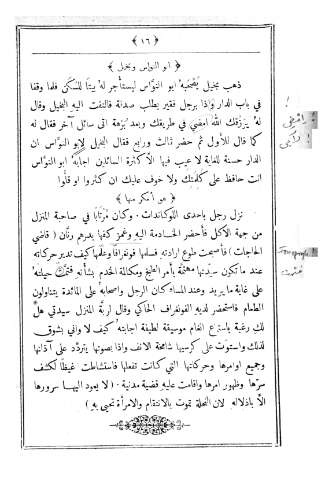 ﴿ ١٦ ﴾
﴿ ابو النوَّاس وبخيل ﴾
ذهب بخيل بصحبة ابو النوَّاس ليستأجر له بيتًا للسكن فلما وقفا
في باب الدار واذا برجل فقير يطلب صدقة فالتفت اليه البخيل وقال
له يرزقك الله امضي في طريقك وبعد برهة اتى سائل آخر فقال له
كما قال للأول ثم حضر ثالث ورابع فقال البخيل لابو النوَّاس ان
الدار حسنة للغاية لا عيب فيها الا كثرة السائلين اجابهُ ابو النوَّاس
انت حافظ على كلمتك ولا خوف عليك ان كثروا او قلُّوا
﴿ هو أمكر منها ﴾
نزل رجل باحدى اللوكاندات. وكان مرتابًا في صاحبة المنزل
من جهة الاكل فأحضر الخادمة اليهِ وغمز كفها بدرهم رنَّان (قاضي
الحاجات) فأصبحت طوع ارادته فسلمها فونغرافًا وعلَّمها كيف تدير حركاته
عند ما تكون سيدتها مهتمة بأمر الطبخ ومكالمة الخدم بشأنه. فتمت حيلته
على غاية ما يريد وعند المساء كان الرجل واصحابه على المائدة يتناولون
الطعام فاستحضر لديه الفونغراف الحاكي وقال لربَّة المنزل سيدتي هل
لكِ رغبة باستماع انغام موسيقة لطيفة اجابته كيف لا واني بشوق
لذلك واستوت على كرسيها شامخة الانف واذا بصوتها يتردَّد على آذانها
وجميع اوامرها وحركاتها التي كانت تفعلها فاستشاطت غيظًا لكشف
سرّها وظهور امرها واقامت عليهِ قضية مدنية. (لا يعود اليها سرورها
الَّا باذلاله لان النحلة تموت بالانتقام والامرأة تحيى به)